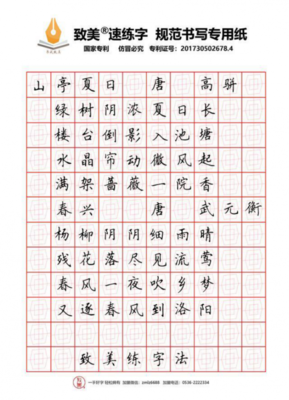 致美®速练字 规范书写专用纸
国家专利 仿冒必究 专利证号：201730502678.4
山亭夏日 唐 高骈
绿树阴浓夏日长
楼台倒影入池塘
水晶帘动微风起
满架蔷薇一院香
春兴 唐 武元衡
杨柳阴阴细雨晴
残花落尽见流莺
春风一夜吹乡梦
又逐春风到洛阳
致美练字法